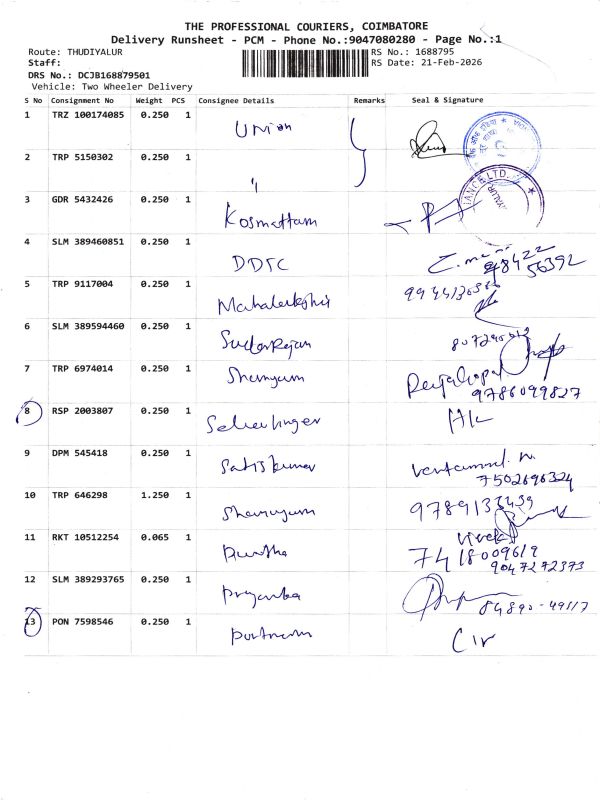 THE PROFESSIONAL COURIERS, COIMBATORE
Delivery Runsheet - PCM - Phone No.:9047080280 - Page No.:1
Route: THUDIYALUR RS No.: 1688795
Staff: RS Date: 21-Feb-2026
DRS No.: DCJB168879501
Vehicle: Two Wheeler Delivery
S No Consignment No Weight PCS Consignee Details Remarks Seal & Signature
1 TRZ 100174085 0.250 1 Union
2 TRP 5150302 0.250 1 "
3 GDR 5432426 0.250 1 Kosmattam
4 SLM 389460851 0.250 1 DDTC 98422
56392
5 TRP 9117004 0.250 1
6 SLM 389594460 0.250 1
7 TRP 6974014 0.250 1 Rajagopal
9786099827
8 RSP 2003807 0.250 1
9 DPM 545418 0.250 1 Satiskumar
7502696324
10 TRP 646298 1.250 1 9789133439
11 RKT 10512254 0.065 1 Vivek
7418009619
9047272373
12 SLM 389293765 0.250 1 Priyanka 84890-49517
13 PON 7598546 0.250 1